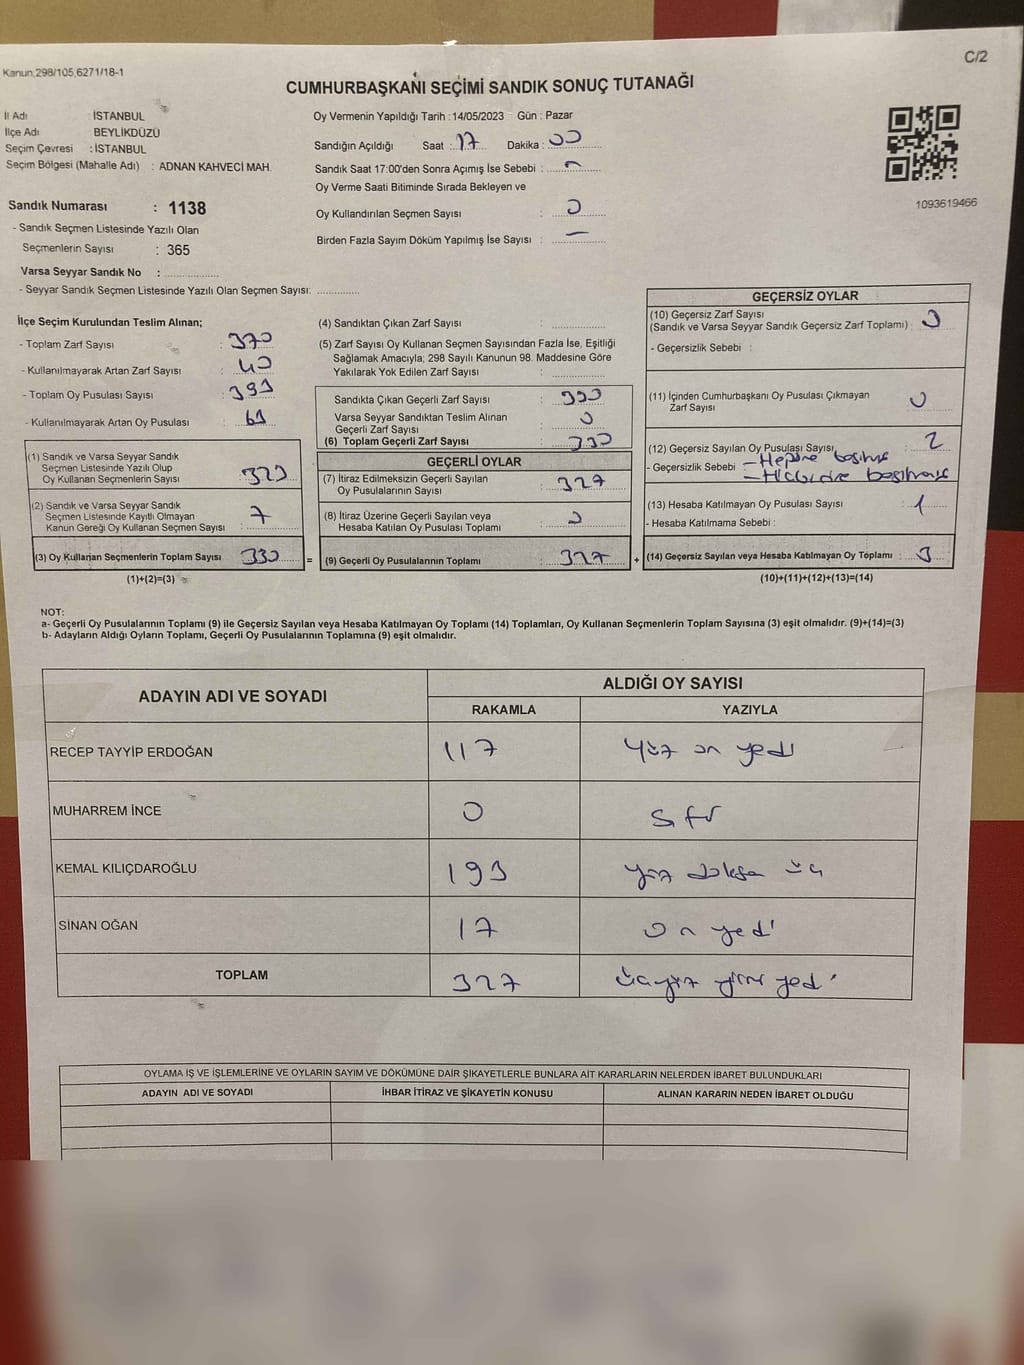 C/2
Kanun,298/105,6271/18-1
CUMHURBAŞKANI SEÇİMİ SANDIK SONUÇ TUTANAĞI
İl Adı : İSTANBUL
İlçe Adı : BEYLİKDÜZÜ
Seçim Çevresi : İSTANBUL
Seçim Bölgesi (Mahalle Adı) : ADNAN KAHVECİ MAH.
Sandık Numarası : 1138
- Sandık Seçmen Listesinde Yazılı Olan
Seçmenlerin Sayısı : 365
Varsa Seyyar Sandık No :
- Seyyar Sandık Seçmen Listesinde Yazılı Olan Seçmen Sayısı:
Oy Vermenin Yapıldığı Tarih : 14/05/2023 Gün : Pazar
Sandığın Açıldığı Saat : 17 Dakika : 00
Sandık Saat 17:00'den Sonra Açımış İse Sebebi :
Oy Verme Saati Bitiminde Sırada Bekleyen ve
Oy Kullandırılan Seçmen Sayısı : 0
Birden Fazla Sayım Döküm Yapılmış İse Sayısı : —
1093619466
İlçe Seçim Kurulundan Teslim Alınan;
- Toplam Zarf Sayısı : 370
- Kullanılmayarak Artan Zarf Sayısı : 40
- Toplam Oy Pusulası Sayısı : 393
- Kullanılmayarak Artan Oy Pusulası : 63
(1) Sandık ve Varsa Seyyar Sandık
Seçmen Listesinde Yazılı Olup
Oy Kullanan Seçmenlerin Sayısı : 323
(2) Sandık ve Varsa Seyyar Sandık
Seçmen Listesinde Kayıtlı Olmayan
Kanun Gereği Oy Kullanan Seçmen Sayısı : 7
(3) Oy Kullanan Seçmenlerin Toplam Sayısı 330 =
(1)+(2)=(3)
(4) Sandıktan Çıkan Zarf Sayısı :
(5) Zarf Sayısı Oy Kullanan Seçmen Sayısından Fazla İse, Eşitliği
Sağlamak Amacıyla; 298 Sayılı Kanunun 98. Maddesine Göre
Yakılarak Yok Edilen Zarf Sayısı :
Sandıkta Çıkan Geçerli Zarf Sayısı : 330
Varsa Seyyar Sandıktan Teslim Alınan
Geçerli Zarf Sayısı : 0
(6) Toplam Geçerli Zarf Sayısı : 330
GEÇERLİ OYLAR
(7) İtiraz Edilmeksizin Geçerli Sayılan
Oy Pusulalarının Sayısı : 327
(8) İtiraz Üzerine Geçerli Sayılan veya
Hesaba Katılan Oy Pusulası Toplamı : 0
(9) Geçerli Oy Pusulalarının Toplamı : 327 +
GEÇERSİZ OYLAR
(10) Geçersiz Zarf Sayısı
(Sandık ve Varsa Seyyar Sandık Geçersiz Zarf Toplamı) : 0
- Geçersizlik Sebebi :
(11) İçinden Cumhurbaşkanı Oy Pusulası Çıkmayan
Zarf Sayısı : 0
(12) Geçersiz Sayılan Oy Pusulası Sayısı : 2
- Geçersizlik Sebebi — Hepsine basılmış
— Hiçbirine basılmamış
(13) Hesaba Katılmayan Oy Pusulası Sayısı : 1
- Hesaba Katılmama Sebebi :
(14) Geçersiz Sayılan veya Hesaba Katılmayan Oy Toplamı : 3
(10)+(11)+(12)+(13)=(14)
NOT:
a- Geçerli Oy Pusulalarının Toplamı (9) ile Geçersiz Sayılan veya Hesaba Katılmayan Oy Toplamı (14) Toplamları, Oy Kullanan Seçmenlerin Toplam Sayısına (3) eşit olmalıdır. (9)+(14)=(3)
b- Adayların Aldığı Oyların Toplamı, Geçerli Oy Pusulalarının Toplamına (9) eşit olmalıdır.
ADAYIN ADI VE SOYADI
ALDIĞI OY SAYISI
RAKAMLA YAZIYLA
RECEP TAYYİP ERDOĞAN 117 Yüz on yedi
MUHARREM İNCE 0 sıfır
KEMAL KILIÇDAROĞLU 193 yüz doksan üç
SİNAN OĞAN 17 on yedi
TOPLAM 327 üçyüz yirmi yedi
OYLAMA İŞ VE İŞLEMLERİNE VE OYLARIN SAYIM VE DÖKÜMÜNE DAİR ŞİKAYETLERLE BUNLARA AİT KARARLARIN NELERDEN İBARET BULUNDUKLARI
ADAYIN ADI VE SOYADI İHBAR İTİRAZ VE ŞİKAYETİN KONUSU ALINAN KARARIN NEDEN İBARET OLDUĞU